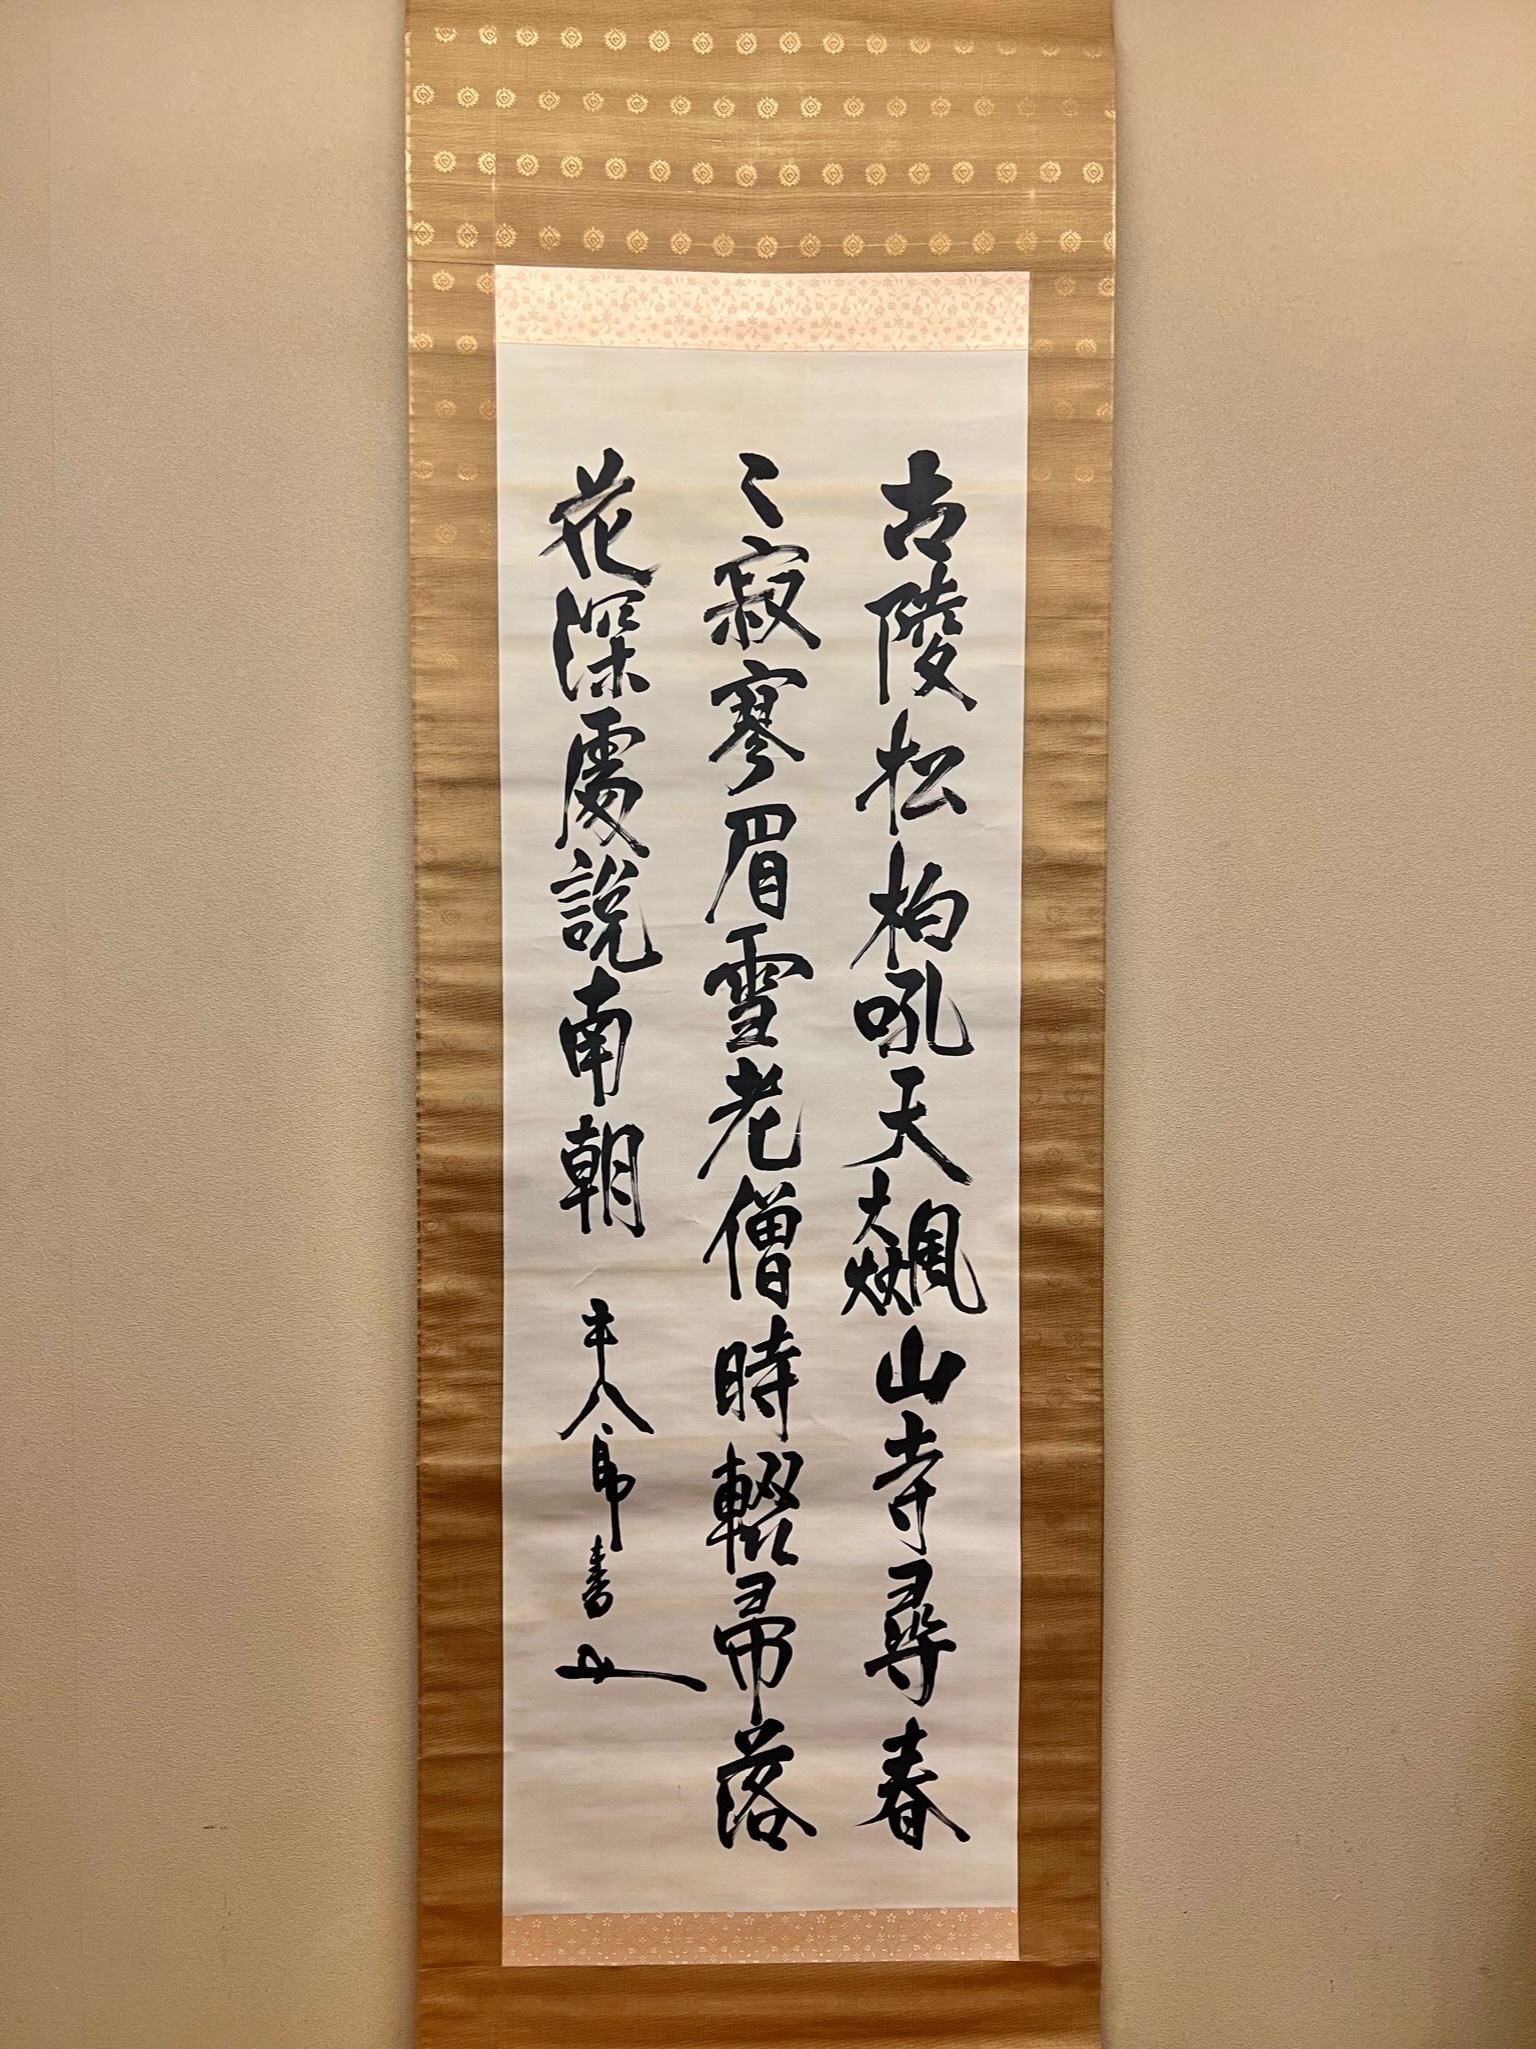 古陵松柏吼天飆山寺尋春
〻寂寥眉雪老僧時輟帚落
花深處説南朝
八郎書